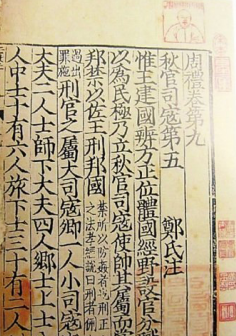 周禮卷第九
秋官司寇第五 鄭氏注
惟王建國辨方正位體國經野設官分職
以為民極乃立秋官司寇使帥其屬而掌
邦禁以佐王刑邦國 禁所以防姦者也刑正人之法孝經說曰刑者侀也
過出罪施 刑官之屬大司寇卿一人小司寇
大夫二人士師下大夫四人鄉士上士
人中士十有六人旅下士三十有二人